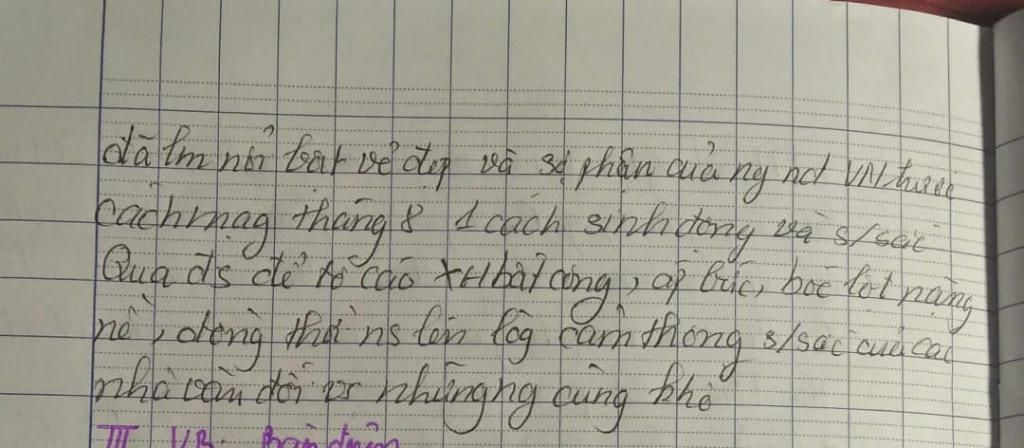 đã lm nổi bật vẻ đẹp và số phận của ng nd VN trước
cách mạg tháng 8 1 cách sinh động và s/sắc
Qua đs để tố cáo XH bất công, áp bức, bóc lột nặng
nề, đồng thời ns lên lòg cảm thông s/sắc của các
nhà văn đối vs những ng cùng khổ
III VB: